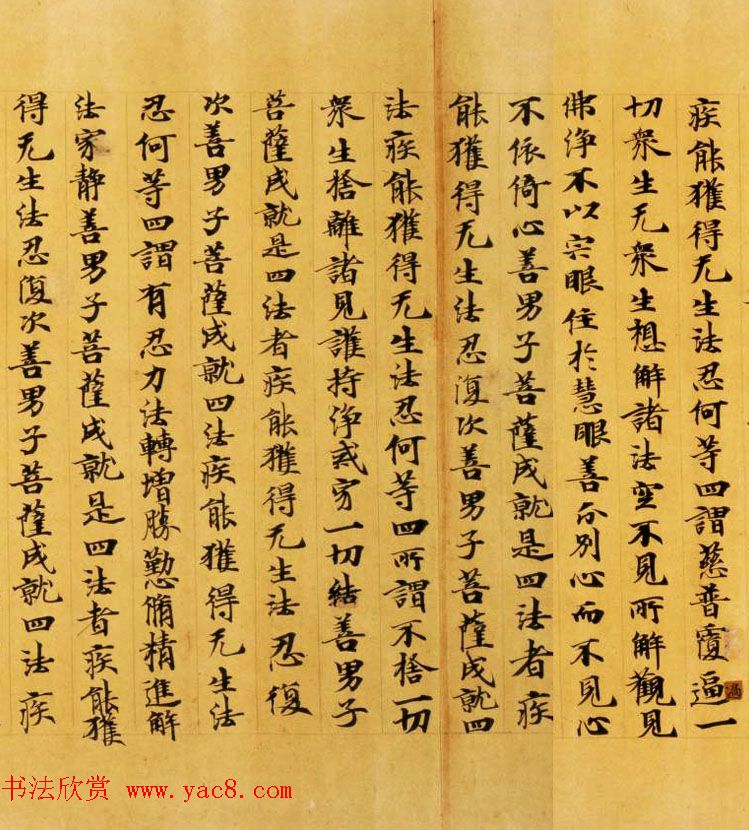 疾能獲得无生法忍何等四謂慈普覆逼一
切衆生无衆生想解諸法空不見所解觀見
佛淨不以宍眼住於慧眼善分別心而不見心
不依倚心善男子菩薩成就是四法者疾
能獲得无生法忍復次善男子菩薩成就四
法疾能獲得无生法忍何等四所謂不捨一切
衆生捨離諸見護持淨戒一切結善男子
菩薩成就是四法者疾能獲得无生法忍復
次善男子菩薩成就四法疾能獲得无生法
忍何等四謂有忍力法轉增勝懃脩精進解
法寂静善男子菩薩成就是四法者疾能獲
得无生法忍復次善男子菩薩成就四法疾
书法欣赏 www.yac8.com